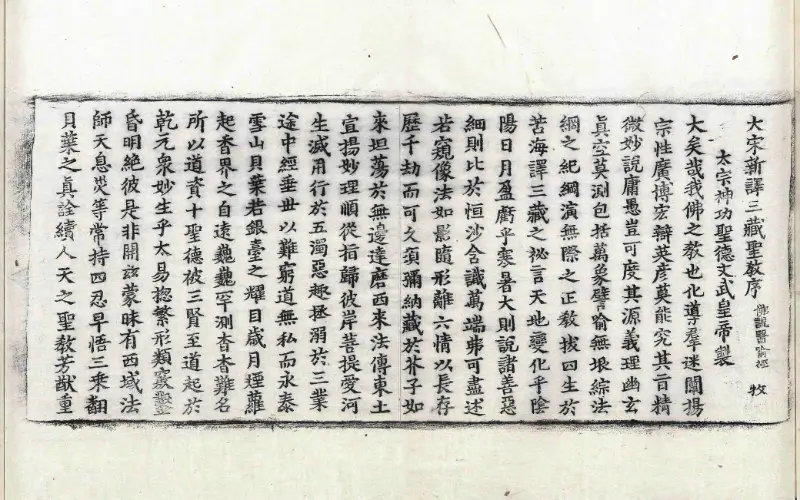 大宋新譯三藏聖敎序 佛說醫喻經 牧
太宗神功聖德文武皇帝製
大矣哉我佛之敎也化導羣迷闡揚
宗性廣博宏辯英彦莫能究其言精
微妙說庸愚豈可度其源義理幽玄
眞空莫測包括萬象譬喻無垠綜法
網之紀綱演無際之正敎拔四生於
苦海譯三藏之祕言天地變化乎陰
陽日月盈虧乎寒暑大則說諸善惡
細則比於恒沙含識萬端弗可盡述
若窺像法如影隨形離六情以長存
歷千劫而可久須彌納藏於芥子如
來坦蕩於無邊達磨西來法傳東土
宣揚妙理順從指歸彼岸菩提愛河
生滅用行於五濁惡趣拯溺於三業
途中經垂世以難窮道無私而永泰
雪山貝葉若銀臺之耀目歲月煙蘿
起香界之自遠巍巍罕測杳杳難名
所以道資十聖德被三賢至道起於
乾元衆妙生乎太易揔繁形類竅鑿
昏明絶彼是非開玆蒙昧有西域法
師天息災等常持四忍早悟三乘翻
貝葉之眞詮續人天之聖敎芳猷重